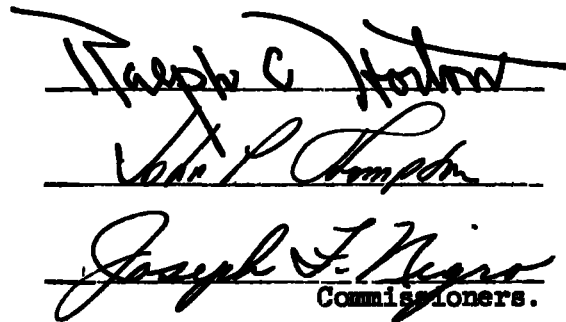 Ralph C Horton
John P Thompson
Joseph F. Negro
Commissioners.